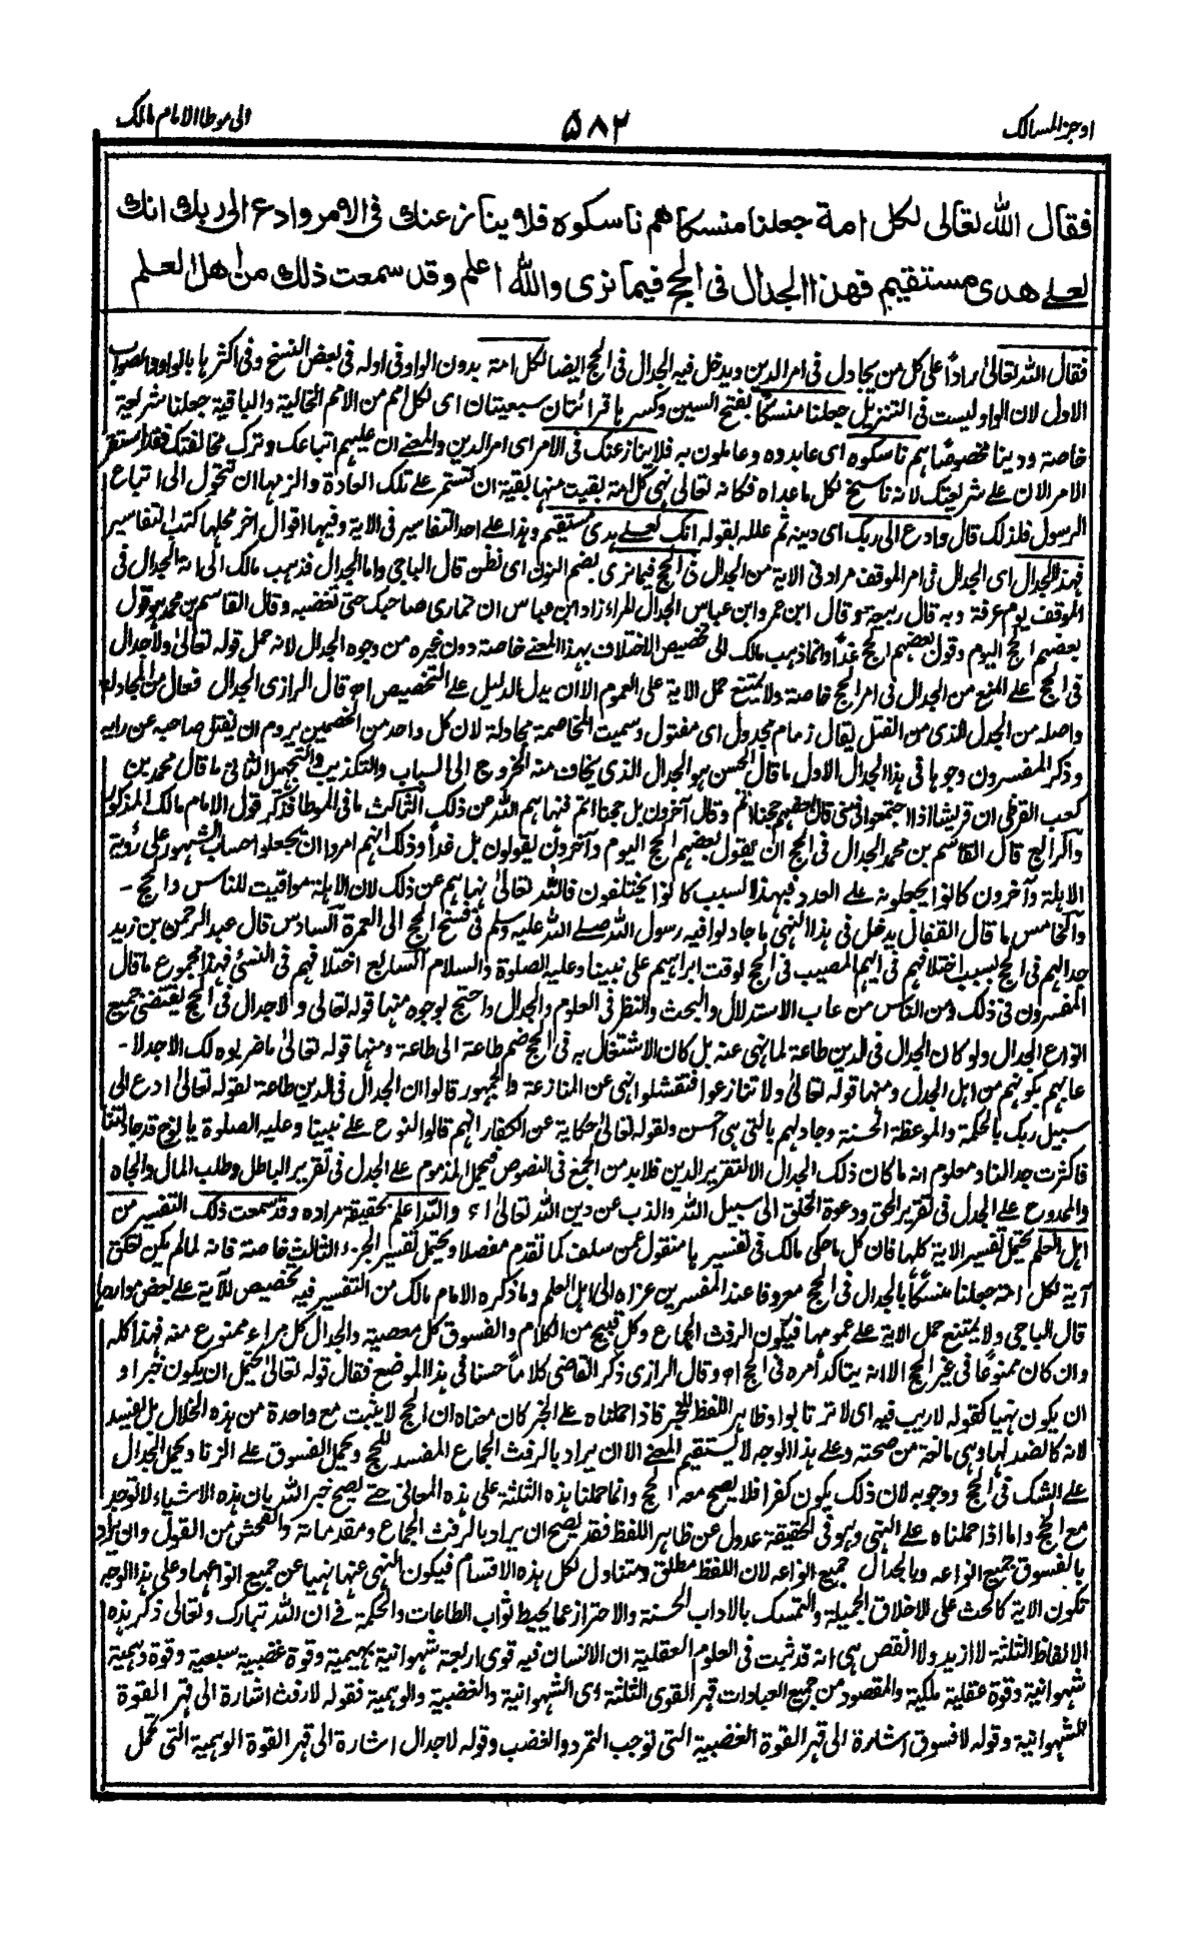 اوجز المسالك ۵۸۲ الى موطا الامام مالك
فقال الله تعالى لكل امة جعلنا منسكا هم ناسكوه فلا ينازعنك فى الامر وادع الى ربك انك
لعلى هدى مستقيم فهذا الجدال فى الحج فيما نرى والله اعلم وقد سمعت ذلك من اهل العلم
فقال الله تعالى راداً على كل من يجادل فى امر الدين ويدخل فيه الجدال فى الحج ايضا لكل امة بدون الواو فى اوله فى بعض النسخ وفى اكثرها بالواو والصواب
الاول لان الواو ليست فى التنزيل جعلنا منسكاً بفتح السين وكسرها قرائتان سبعيتان اى لكل امم من الامم الخالية والباقية جعلنا شريعة
خاصة ودينا مخصوصاً هم ناسكوه اى عابدوه وعاملون به فلا ينازعنك فى الامر اى امر الدين والمعنى ان عليهم اتباعك وترك مخالفتك فقد استقر
الامر الان على شريعتك لانه ناسخ لكل ما عداه فكانه تعالى نهى كل امة بقيت منها بقية ان تستمر على تلك العادة والزمها ان تتحول الى اتباع
الرسول فلذلك قال وادع الى ربك اى دينه ثم علله بقوله انك لعلى هدى مستقيم وهذا على احد التفاسير فى الاية وفيها اقوال اخر محلها كتب التفاسير
فهذا الجدال اى الجدال فى امر الموقف مراد فى الاية من الجدال فى الحج فيما نرى بضم النون اى نظن قال الباجى واما الجدال فذهب مالك الى انه الجدال فى
الموقف يوم عرفة وبه قال ربيعة وقال ابن عمر وابن عباس الجدال المراء زاد ابن عباس ان تمارى صاحبك حتى تغضبه وقال القاسم بن محمد هو قول
بعضهم الحج اليوم وقول بعضهم الحج غداً وانما ذهب مالك الى تخصيص الاختلاف بهذا المعنى خاصة دون غيره من وجوه الجدال لانه حمل قوله تعالى ولا جدال
فى الحج على المنع من الجدال فى امر الحج خاصة ولا يمتنع حمل الاية على العموم الا ان يدل الدليل على التخصيص اه قال الرازى الجدال فعال من المجادلة
واصله من الجدل الذى من الفتل يقال زمام مجدول اى مفتول وسميت المخاصمة مجادلة لان كل واحد من الخصمين يروم ان يفتل صاحبه عن رايه
وذكر المفسرون وجوها فى هذا الجدال الاول ما قال الحسن هو الجدال الذى يخاف منه الخروج الى السباب والتكذيب والتجهيل الثانى ما قال محمد بن
كعب القرظى ان قريشا اذا اجتمعوا بمنى قال بعضهم حجنا اتم وقال آخرون بل حجنا اتم فنهاهم الله عن ذلك الثالث ما فى الموطا فذكر قول الامام مالك المذكور
والرابع قال القاسم بن محمد الجدال فى الحج ان يقول بعضهم الحج اليوم وآخرون يقولون بل غداً وذلك انهم امروا ان يجعلوا حساب الشهور على رؤية
الاهلة وآخرون كانوا يجعلونه على العدد فبهذا السبب كانوا يختلفون فالله تعالى نهاهم عن ذلك لان الاهلة مواقيت للناس والحج -
والخامس ما قال القفال يدخل فى هذا النهى ما جادلوا فيه رسول الله صلى الله عليه وسلم فى فسخ الحج الى العمرة السادس قال عبد الرحمن بن زيد
جدالهم فى الحج بسبب اختلافهم فى ايهم المصيب فى الحج لوقت ابراهيم على نبينا وعليه الصلوة والسلام السابع اختلافهم فى النسئ فهذا مجموع ما قال
المفسرون فى ذلك ومن الناس من عاب الاستدلال والبحث والنظر فى العلوم والجدال واحتج بوجوه منها قوله تعالى ولا جدال فى الحج يقتضى جميع
انواع الجدال ولو كان الجدال فى الدين طاعة لما نهى عنه بل كان الاشتغال به فى الحج ضم طاعة الى طاعة ومنها قوله تعالى ما ضربوه لك الا جدلا -
عابهم بكونهم من اهل الجدل ومنها قوله تعالى ولا تنازعوا فتفشلوا نهى عن المنازعة والجمهور قالوا ان الجدال فى الدين طاعة لقوله تعالى ادع الى
سبيل ربك بالحكمة والموعظة الحسنة وجادلهم بالتى هى احسن ولقوله تعالى حكاية عن الكفار انهم قالوا لنوح على نبينا وعليه الصلوة يا نوح قد جادلتنا
فاكثرت جدالنا ومعلوم انه ما كان ذلك الجدال الا لتقرير الدين فلا بد من الجمع فى النصوص فيحمل المذموم على الجدل فى تقرير الباطل وطلب المال والجاه
والممدوح على الجدل فى تقرير الحق ودعوة الخلق الى سبيل الله والذب عن دين الله تعالى اه والله اعلم بحقيقة مراده وقد سمعت ذلك التفسير من
اهل العلم يحتمل تفسير الاية كلها فان كل ما حكى مالك فى تفسيرها منقول عن سلف كما تقدم مفصلا ويحتمل تفسير الجزء الثالث خاصة فانه لما لم يكن تعلق
آية لكل امة جعلنا منسكاً بالجدال فى الحج معروفا عند المفسرين عزاه الى اهل العلم وما ذكره الامام مالك من التفسير فيه تخصيص للآية على بعض مواردها
قال الباجى ولا يمتنع حمل الاية على عمومها فيكون الرفث الجماع وكل قبيح من الكلام والفسوق كل معصية والجدال كل مراء ممنوع منه فهذا كله
وان كان ممنوعاً فى غير الحج الا انه يتاكد أمره فى الحج اه وقال الرازى ذكر القاضى كلاماً حسنا فى هذا الموضع فقال قوله تعالى يحتمل ان يكون خبرا و
ان يكون نهيا كقوله لا ريب فيه اى لا ترتابوا وظاهر اللفظ للخبر فاذا حملناه على الخبر كان معناه ان الحج لا يثبت مع واحدة من هذه الخلال بل يفسد
لانه كالضد لها وهى مانعة من صحته وعلى هذا الوجه لا يستقيم المعنى الا ان يراد بالرفث الجماع المفسد للحج ويحمل الفسوق على الزنا ويحمل الجدال
على الشك فى الحج ووجوبه لان ذلك يكون كفرا فلا يصح معه الحج وانما حملنا هذه الثلثة على هذه المعانى حتى يصح خبر الله بان هذه الاشياء لا توجد
مع الحج واما اذا حملناه على النهى وهو فى الحقيقة عدول عن ظاهر اللفظ فقد يصح ان يراد بالرفث الجماع ومقدماته والفحش من القيل وان يراد
بالفسوق جميع انواعه وبالجدال جميع انواعه لان اللفظ مطلق ومتناول لكل هذه الاقسام فيكون النهى عنها نهيا عن جميع انواعها وعلى هذا الوجه
تكون الاية كالحث على الاخلاق الجميلة والتمسك بالاداب الحسنة والاحتراز عما يحبط ثواب الطاعات والحكمة فى ان الله تبارك وتعالى ذكر هذه
الالفاظ الثلثة لا ازيد ولا انقص هى انه قد ثبت فى العلوم العقلية ان الانسان فيه قوى اربعة شهوانية بهيمية وقوة غضبية سبعية وقوة وهمية
شهوانية وقوة عقلية ملكية والمقصود من جميع العبادات قهر القوى الثلثة اى الشهوانية والغضبية والوهمية فقوله لا رفث اشارة الى قهر القوة
الشهوانية وقوله لا فسوق اشارة الى قهر القوة الغضبية التى توجب التمرد والغضب وقوله لا جدال اشارة الى قهر القوة الوهمية التى تحمل